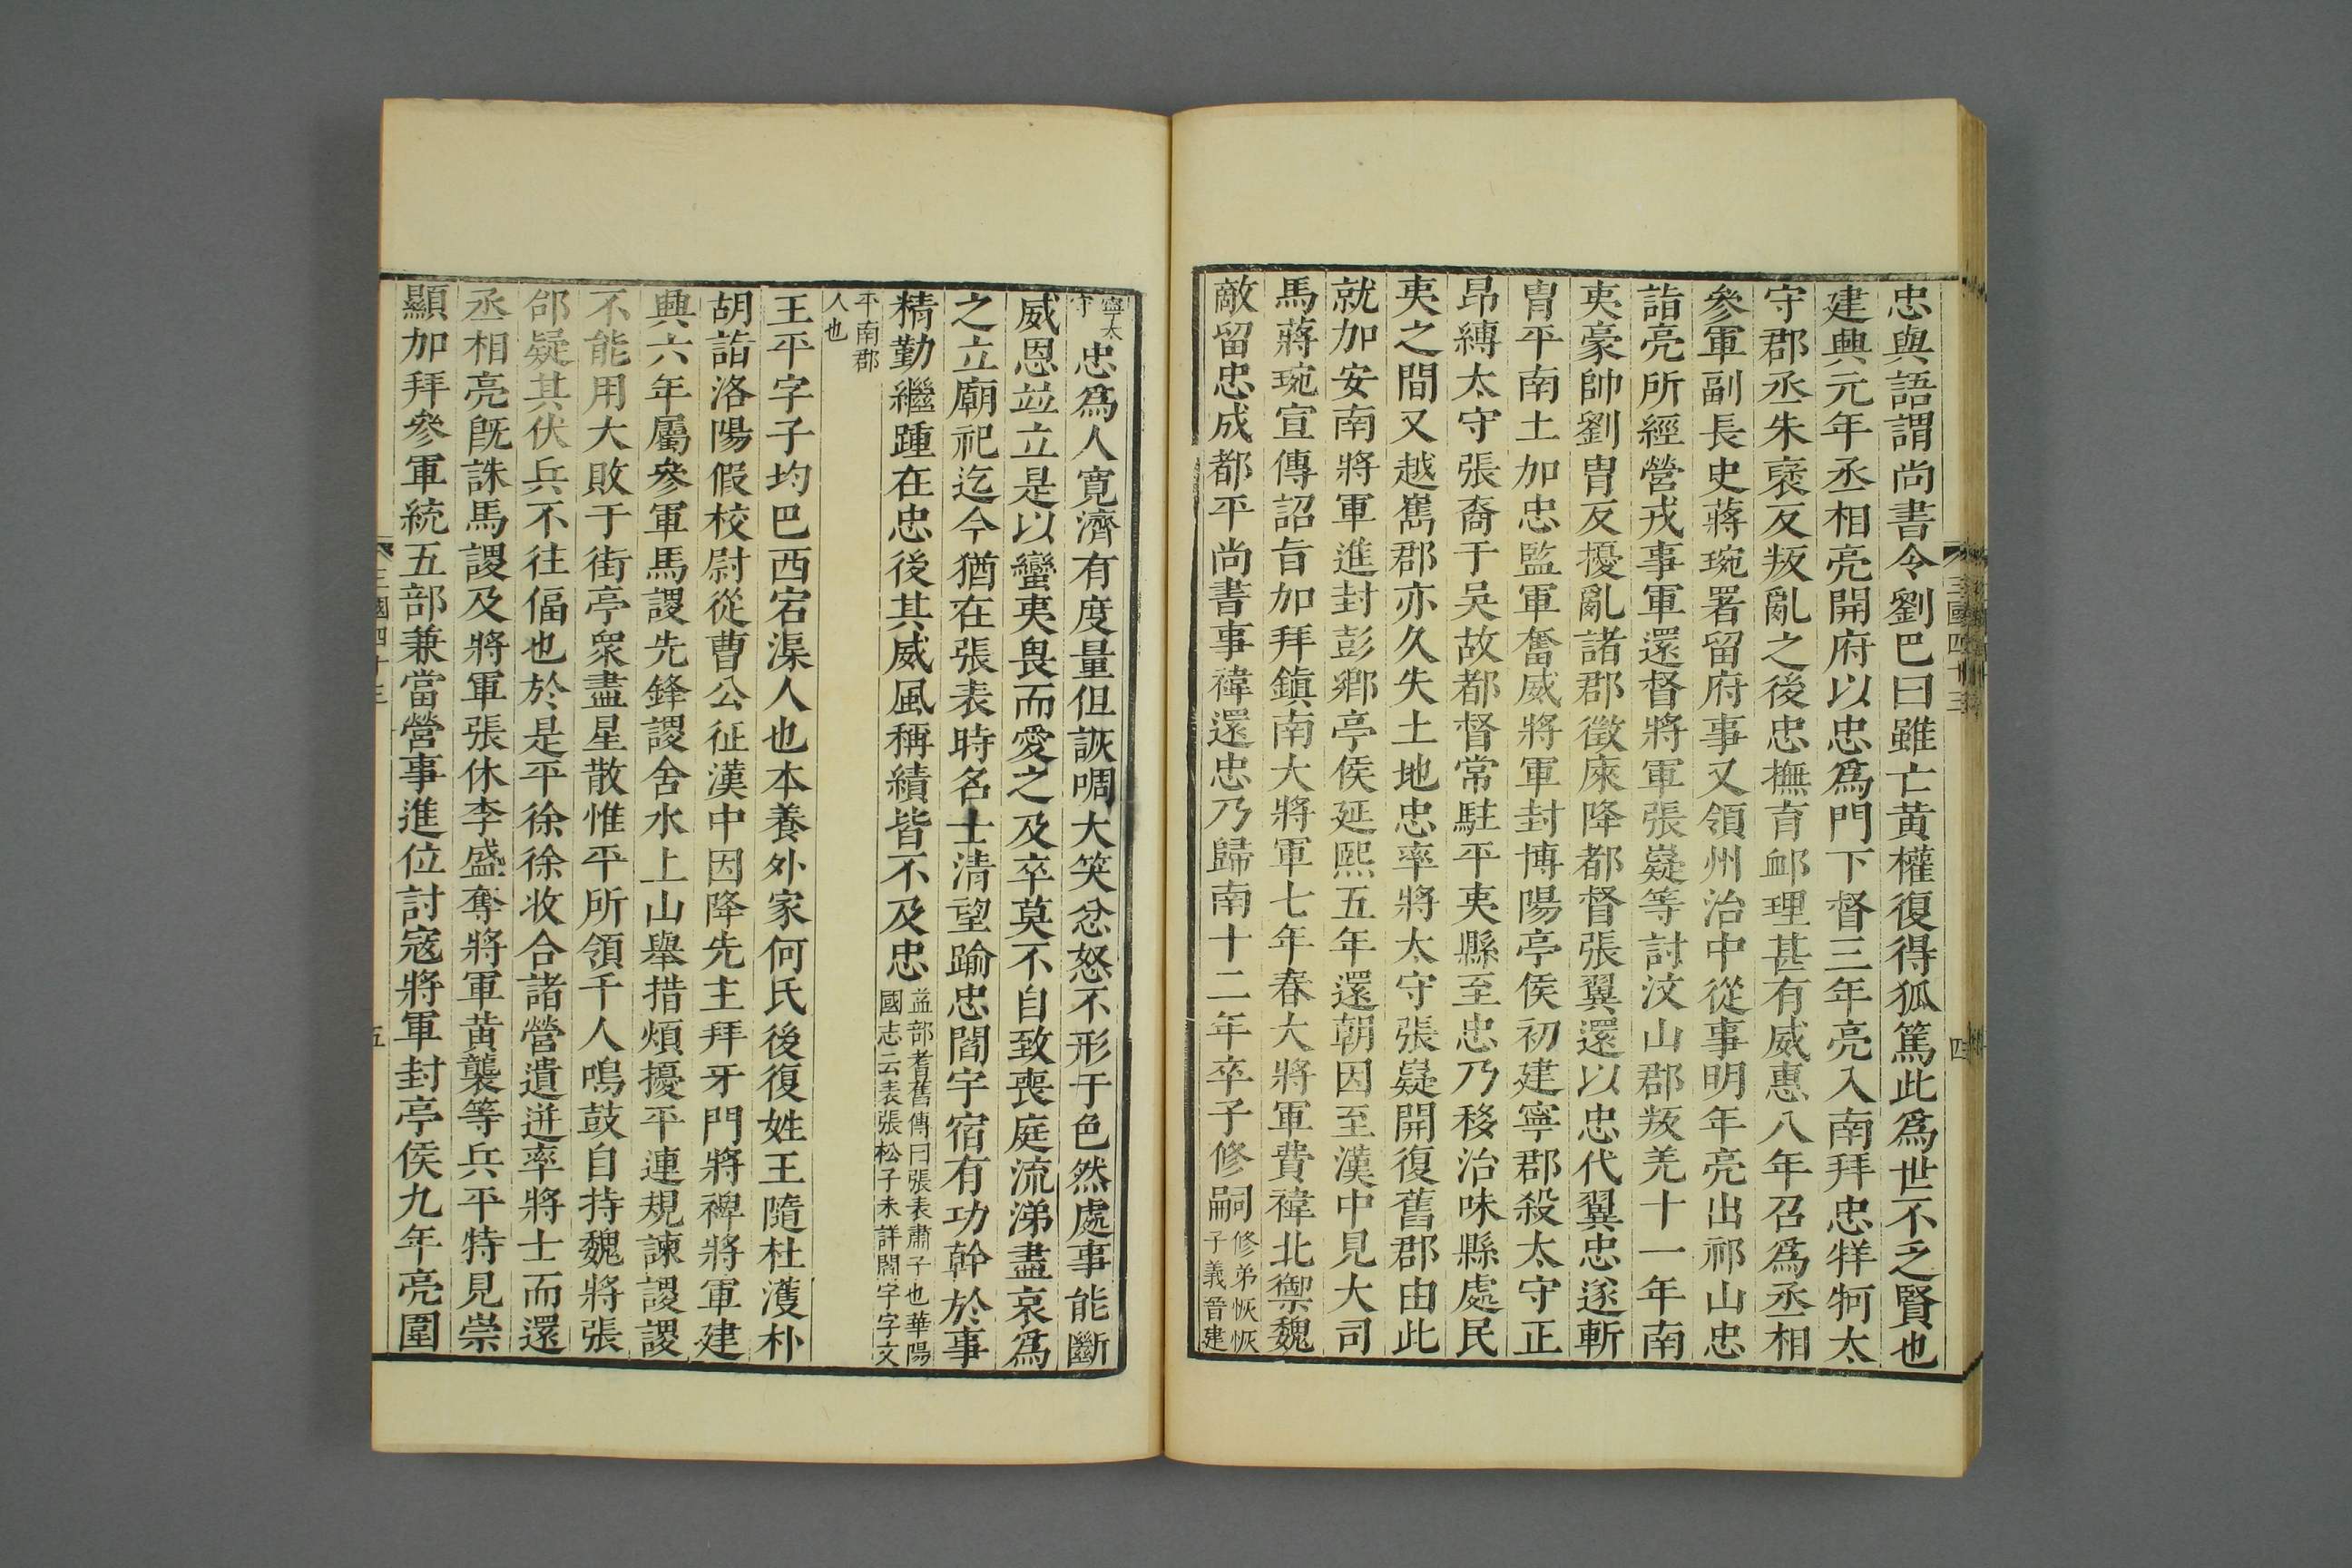 忠與語謂尚書令劉巴曰雖亡黃權復得狐篤此爲世不乏賢也
建興元年丞相亮開府以忠爲門下督三年亮入南拜忠牂牁太
守郡丞朱褒反叛亂之後忠撫育卹理甚有威惠八年召爲丞相
參軍副長史蔣琬署留府事又領州治中從事明年亮出祁山忠
詣亮所經營戎事軍還督將軍張嶷等討汶山郡叛羌十一年南
夷豪帥劉胄反擾亂諸郡徵庲降都督張翼還以忠代翼忠遂斬
胄平南土加忠監軍奮威將軍封博陽亭侯初建寧郡殺太守正
昂縛太守張裔于吳故都督常駐平夷縣至忠乃移治味縣處民
夷之間又越嶲郡亦久失土地忠率將太守張嶷開復舊郡由此
就加安南將軍進封彭鄉亭侯延熙五年還朝因至漢中見大司
馬蔣琬宣傳詔旨加拜鎮南大將軍七年春大將軍費禕北禦魏
敵留忠成都平尚書事禕還忠乃歸南十二年卒子修嗣修弟恢恢
子義晉建
三國四十三
四
寧太
守
忠爲人寬濟有度量但詼啁大笑忿怒不形于色然處事能斷
威恩並立是以蠻夷畏而愛之及卒莫不自致喪庭流涕盡哀爲
之立廟祀迄今猶在張表時名士清望踰忠閻宇宿有功幹於事
精勤繼踵在忠後其威風稱績皆不及忠益部耆舊傳曰張表肅子也華陽
國志云表張松子未詳閻宇字文
平南郡
人也
王平字子均巴西宕渠人也本養外家何氏後復姓王隨杜濩朴
胡詣洛陽假校尉從曹公征漢中因降先主拜牙門將裨將軍建
興六年屬參軍馬謖先鋒謖舍水上山舉措煩擾平連規諫謖謖
不能用大敗于街亭衆盡星散惟平所領千人鳴鼓自持魏將張
郃疑其伏兵不往偪也於是平徐徐收合諸營遺迸率將士而還
丞相亮旣誅馬謖及將軍張休李盛奪將軍黃襲等兵平特見崇
顯加拜參軍統五部兼當營事進位討寇將軍封亭侯九年亮圍
三國四十三
五